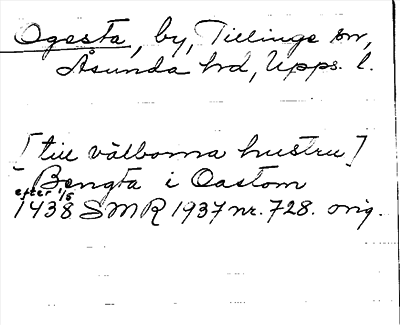 Ogesta, by, Tillinge sn,
Åsunda hd, Upps. l.
[till välborna hustru]
Bengta i Oastom
efter 1/5
1438 SMR 1937 nr. 728. orig.